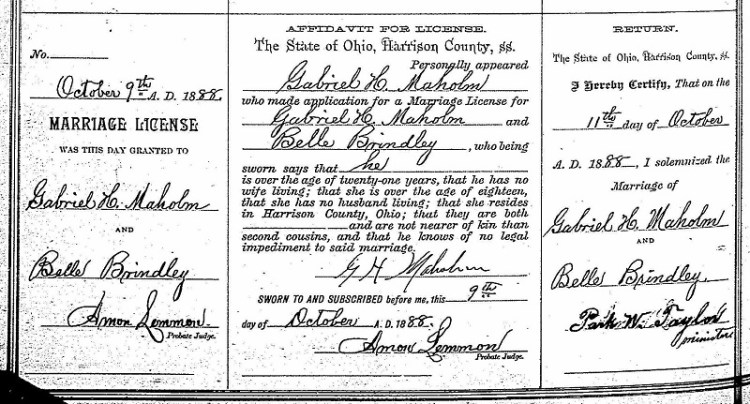 No.
October 9th A. D. 1888.
MARRIAGE LICENSE
WAS THIS DAY GRANTED TO
Gabriel H. Maholm
AND
Belle Brindley
Amon Lemmon.
Probate Judge.
AFFIDAVIT FOR LICENSE.
The State of Ohio, Harrison County, ss.
Personally appeared
Gabriel H. Maholm
who made application for a Marriage License for
Gabriel H. Maholm and
Belle Brindley, who being
sworn says that he
is over the age of twenty-one years, that he has no
wife living; that she is over the age of eighteen,
that she has no husband living; that she resides
in Harrison County, Ohio; that they are both
and are not nearer of kin than
second cousins, and that he knows of no legal
impediment to said marriage.
G H Maholm
SWORN TO AND SUBSCRIBED before me, this 9th
day of October A. D. 1888.
Amon Lemmon
Probate Judge.
RETURN.
The State of Ohio, Harrison County, ss.
I Hereby Certify, That on the
11th day of October
A. D. 1888, I solemnized the
Marriage of
Gabriel H. Maholm
AND
Belle Brindley.
Park W. Taylor
minister